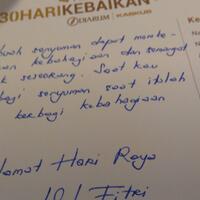 30HARIKEBAIKAN
DJARUM KASKUS
Ke
Na
buah senyuman dapat mence-
kan kebahagiaan dan semangat
k seseorang. Saat kau
bagi senyuman saat itulah
berbagi kebahagiaan
lamat Hari Raya
Idul Fitri